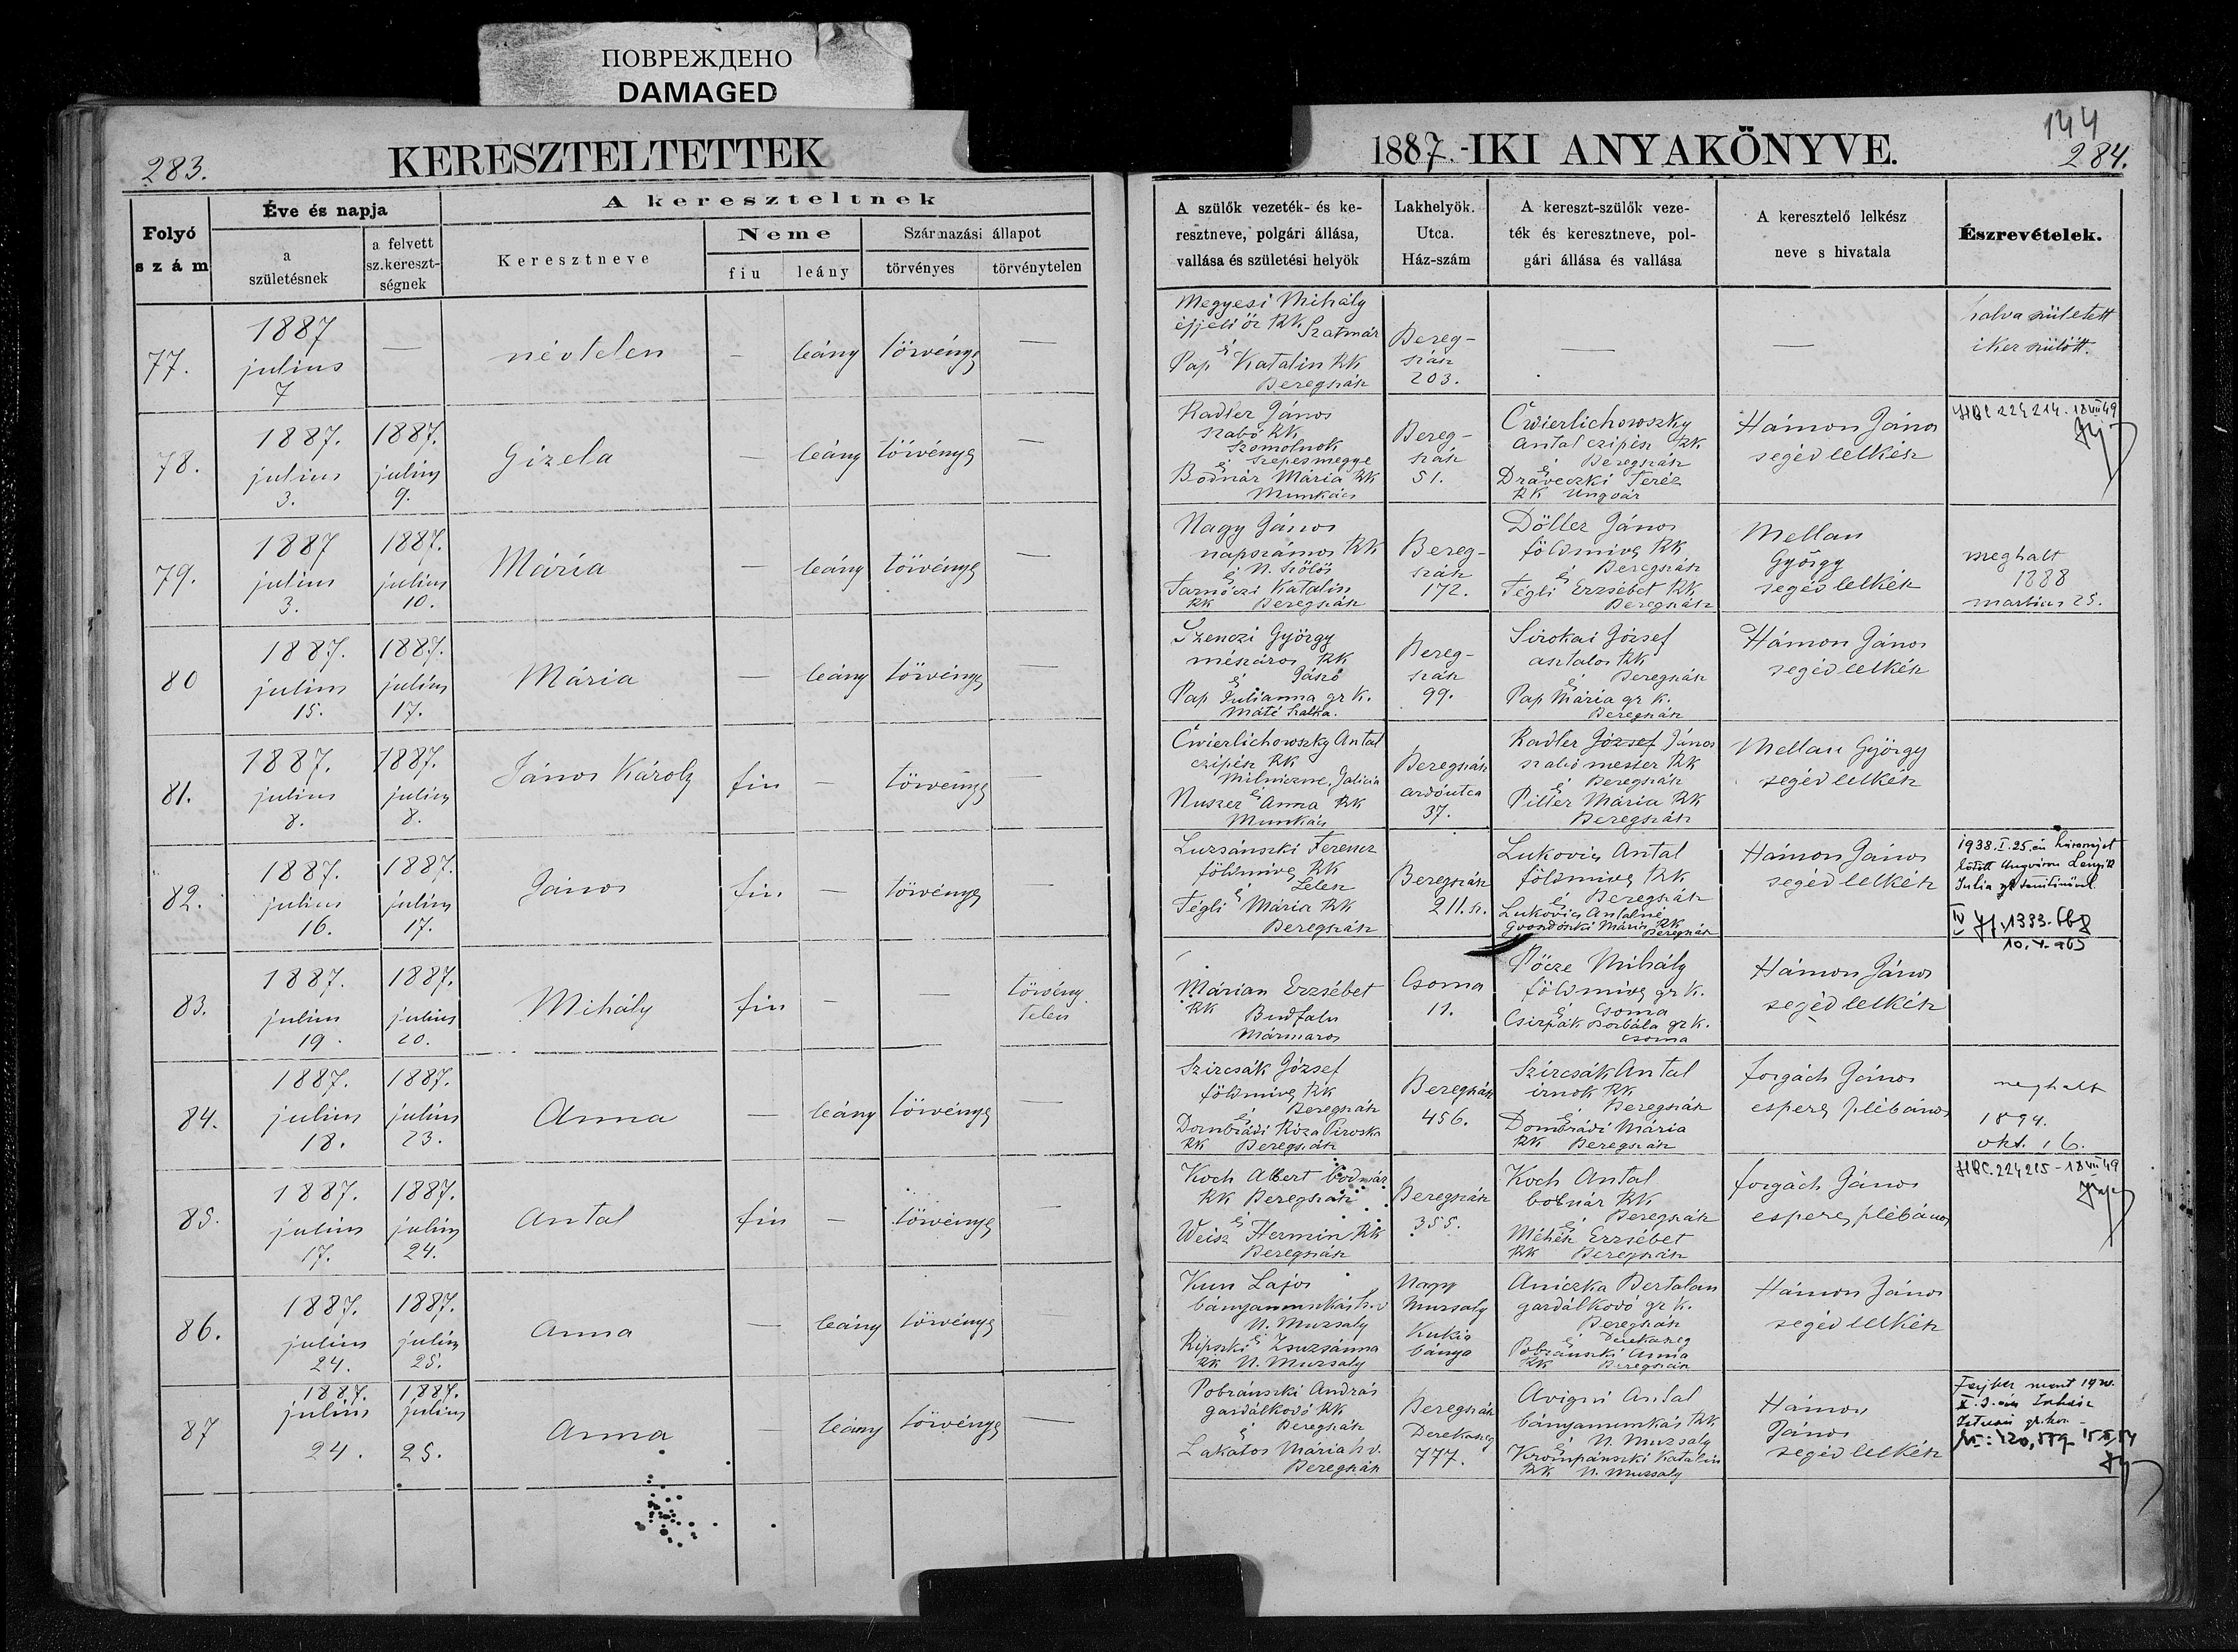 ПОВРЕЖДЕНО
DAMAGED
283.
KERESZTELTETTEK
1887.-IKI ANYAKÖNYVE.
144
284.
Folyó szám
Éve és napja
a születésnek
a felvett sz.kereszt-ségnek
A kereszteltnek
Keresztneve
Neme
fiu
leány
Származási állapot
törvényes
törvénytelen
A szülők vezeték- és ke-
resztneve, polgári állása,
vallása és születési helyök
Lakhelyök.
Utca.
Ház-szám
A kereszt-szülők veze-
ték és keresztneve, pol-
gári állása és vallása
A keresztelő lelkész
neve s hivatala
Észrevételek.
77.
1887
julius
7
—
névtelen
—
leány
törvényes
—
Megyesi Mihály
éjjeli őr RK. Szatmár
és
Pap Katalin RK
Beregszász
Bereg-
szász
203.
—
—
halva született
iker szülött.
78.
1887.
julius
3.
1887.
julius
9.
Gizela
—
leány
törvényes
—
Radler János
szabó RK
Szomolnok
és Szepesmegye
Bodnár Mária RK
Munkács
Bereg-
szász
51.
Cwierlichowszky
Antal czipész RK
és Beregszász
Draveczki Teréz
RK Ungvár
Hámon János
segédlelkész
79.
1887
julius
3.
1887.
julius
10.
Mária
—
leány
törvényes
—
Nagy János
napszámos RK
és N. Szőlős
Tarnóczi Katalin
RK Beregszász
Bereg-
szász
172.
Döller János
földmives RK
és Beregszász
Tégli Erzsébet RK
Beregszász
Mellau
György
segédlelkész
meghalt
1888
martius 25.
80
1887.
julius
15.
1887.
julius
17.
Mária
—
leány
törvényes
—
Szenczi György
mészáros RK
és Jászó
Pap Julianna gr K.
Máté Szalka.
Bereg-
szász
99.
Sirokai József
asztalos RK
és Beregszász
Pap Mária gr K.
Beregszász
Hámon János
segédlelkész
81.
1887.
julius
8.
1887.
julius
8.
János Károly
fiu
—
törvényes
—
Cwierlichowszky Antal
czipész RK
Galicia
és
Nuszer Anna RK
Munkács
Beregszász
ardóutca
37.
Radler József János
szabó mester RK
és Beregszász
Piller Mária RK
Beregszász
Mellau György
segédlelkész
82.
1887.
julius
16.
1887.
julius
17.
János
fiu
—
törvényes
—
Luzsánszki Ferencz
földmives RK
és Lelesz
Tégli Mária RK
Beregszász
Beregszász
211. sz.
Lukovics Antal
földmives RK
és Beregszász
Lukovics Antalné
Mária RK
Beregszász
Hámon János
segédlelkész
1938. I. 25. én házasságot
kötött Ungváron
Julia
83.
1887.
julius
19.
1887.
julius
20.
Mihály
fiu
—
—
törvény-
telen
Márian Erzsébet
RK Budfalu
Mármaros
Csoma
11.
Pőcze Mihály
földmives gr K.
és Csoma
Csirpák Borbála gr K.
Csoma
Hámon János
segédlelkész
84.
1887.
julius
18.
1887.
julius
23.
Anna
—
leány
törvényes
—
Szircsák József
földmives RK
és Beregszász
Dombrádi Róza Piroska
RK Beregszász
Beregszász
456.
Szircsák Antal
irnok RK
és Beregszász
Dombrádi Mária
RK Beregszász
Forgách János
esperes plébános
meghalt
1894.
okt. 16.
85.
1887.
julius
17.
1887.
julius
24.
Antal
fiu
—
törvényes
—
Koch Albert bodnár
RK Beregszász
és
Weisz Hermin RK
Beregszász
Beregszász
355.
Koch Antal
bodnár RK
és Beregszász
Méhész Erzsébet
RK Beregszász
Forgách János
esperes plébános
86.
1887.
julius
24.
1887.
julius
25.
Anna
—
leány
törvényes
—
Kun Lajos
bányamunkás h.v
N. Muzsaly
és
Ripszki Zsuzsánna
RK N. Muzsaly
Nagy
Muzsaly
Kukis
bánya
Aniczka Bertalan
gazdálkodó gr K.
Beregszász
és Derekaszeg
Pobránszki Anna
RK Beregszász
Hámon János
segédlelkész
87
1887.
julius
24.
1887.
julius
25.
Anna
—
leány
törvényes
—
Pobránszki András
gazdálkodó RK
és Beregszász
Lakatos Mária h.v.
Beregszász
Beregszász
Derekaszeg
777.
Avigni Antal
bányamunkás RK
és N. Muzsaly
Krompánszki Katalin
RK N. Muzsaly
Hámon
János
segédlelkész
Férjhez ment